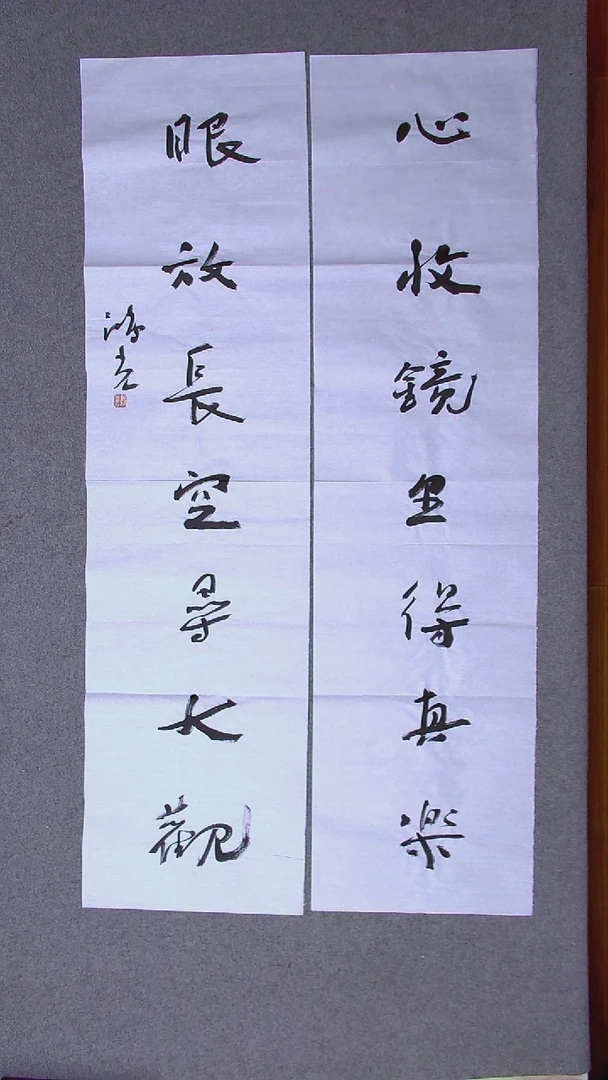 心收鏡里得真樂
眼放長空尋大觀
鴻光